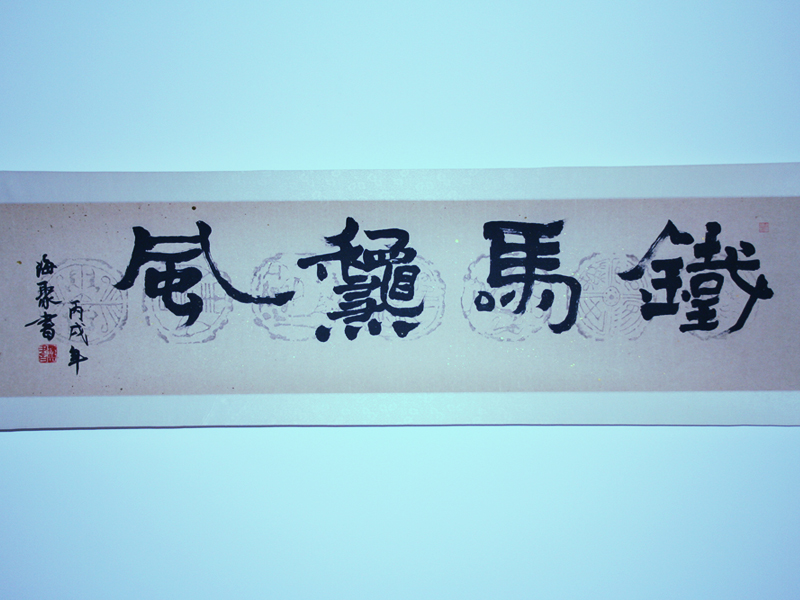 鐵馬龝風
丙戌年
海聚書